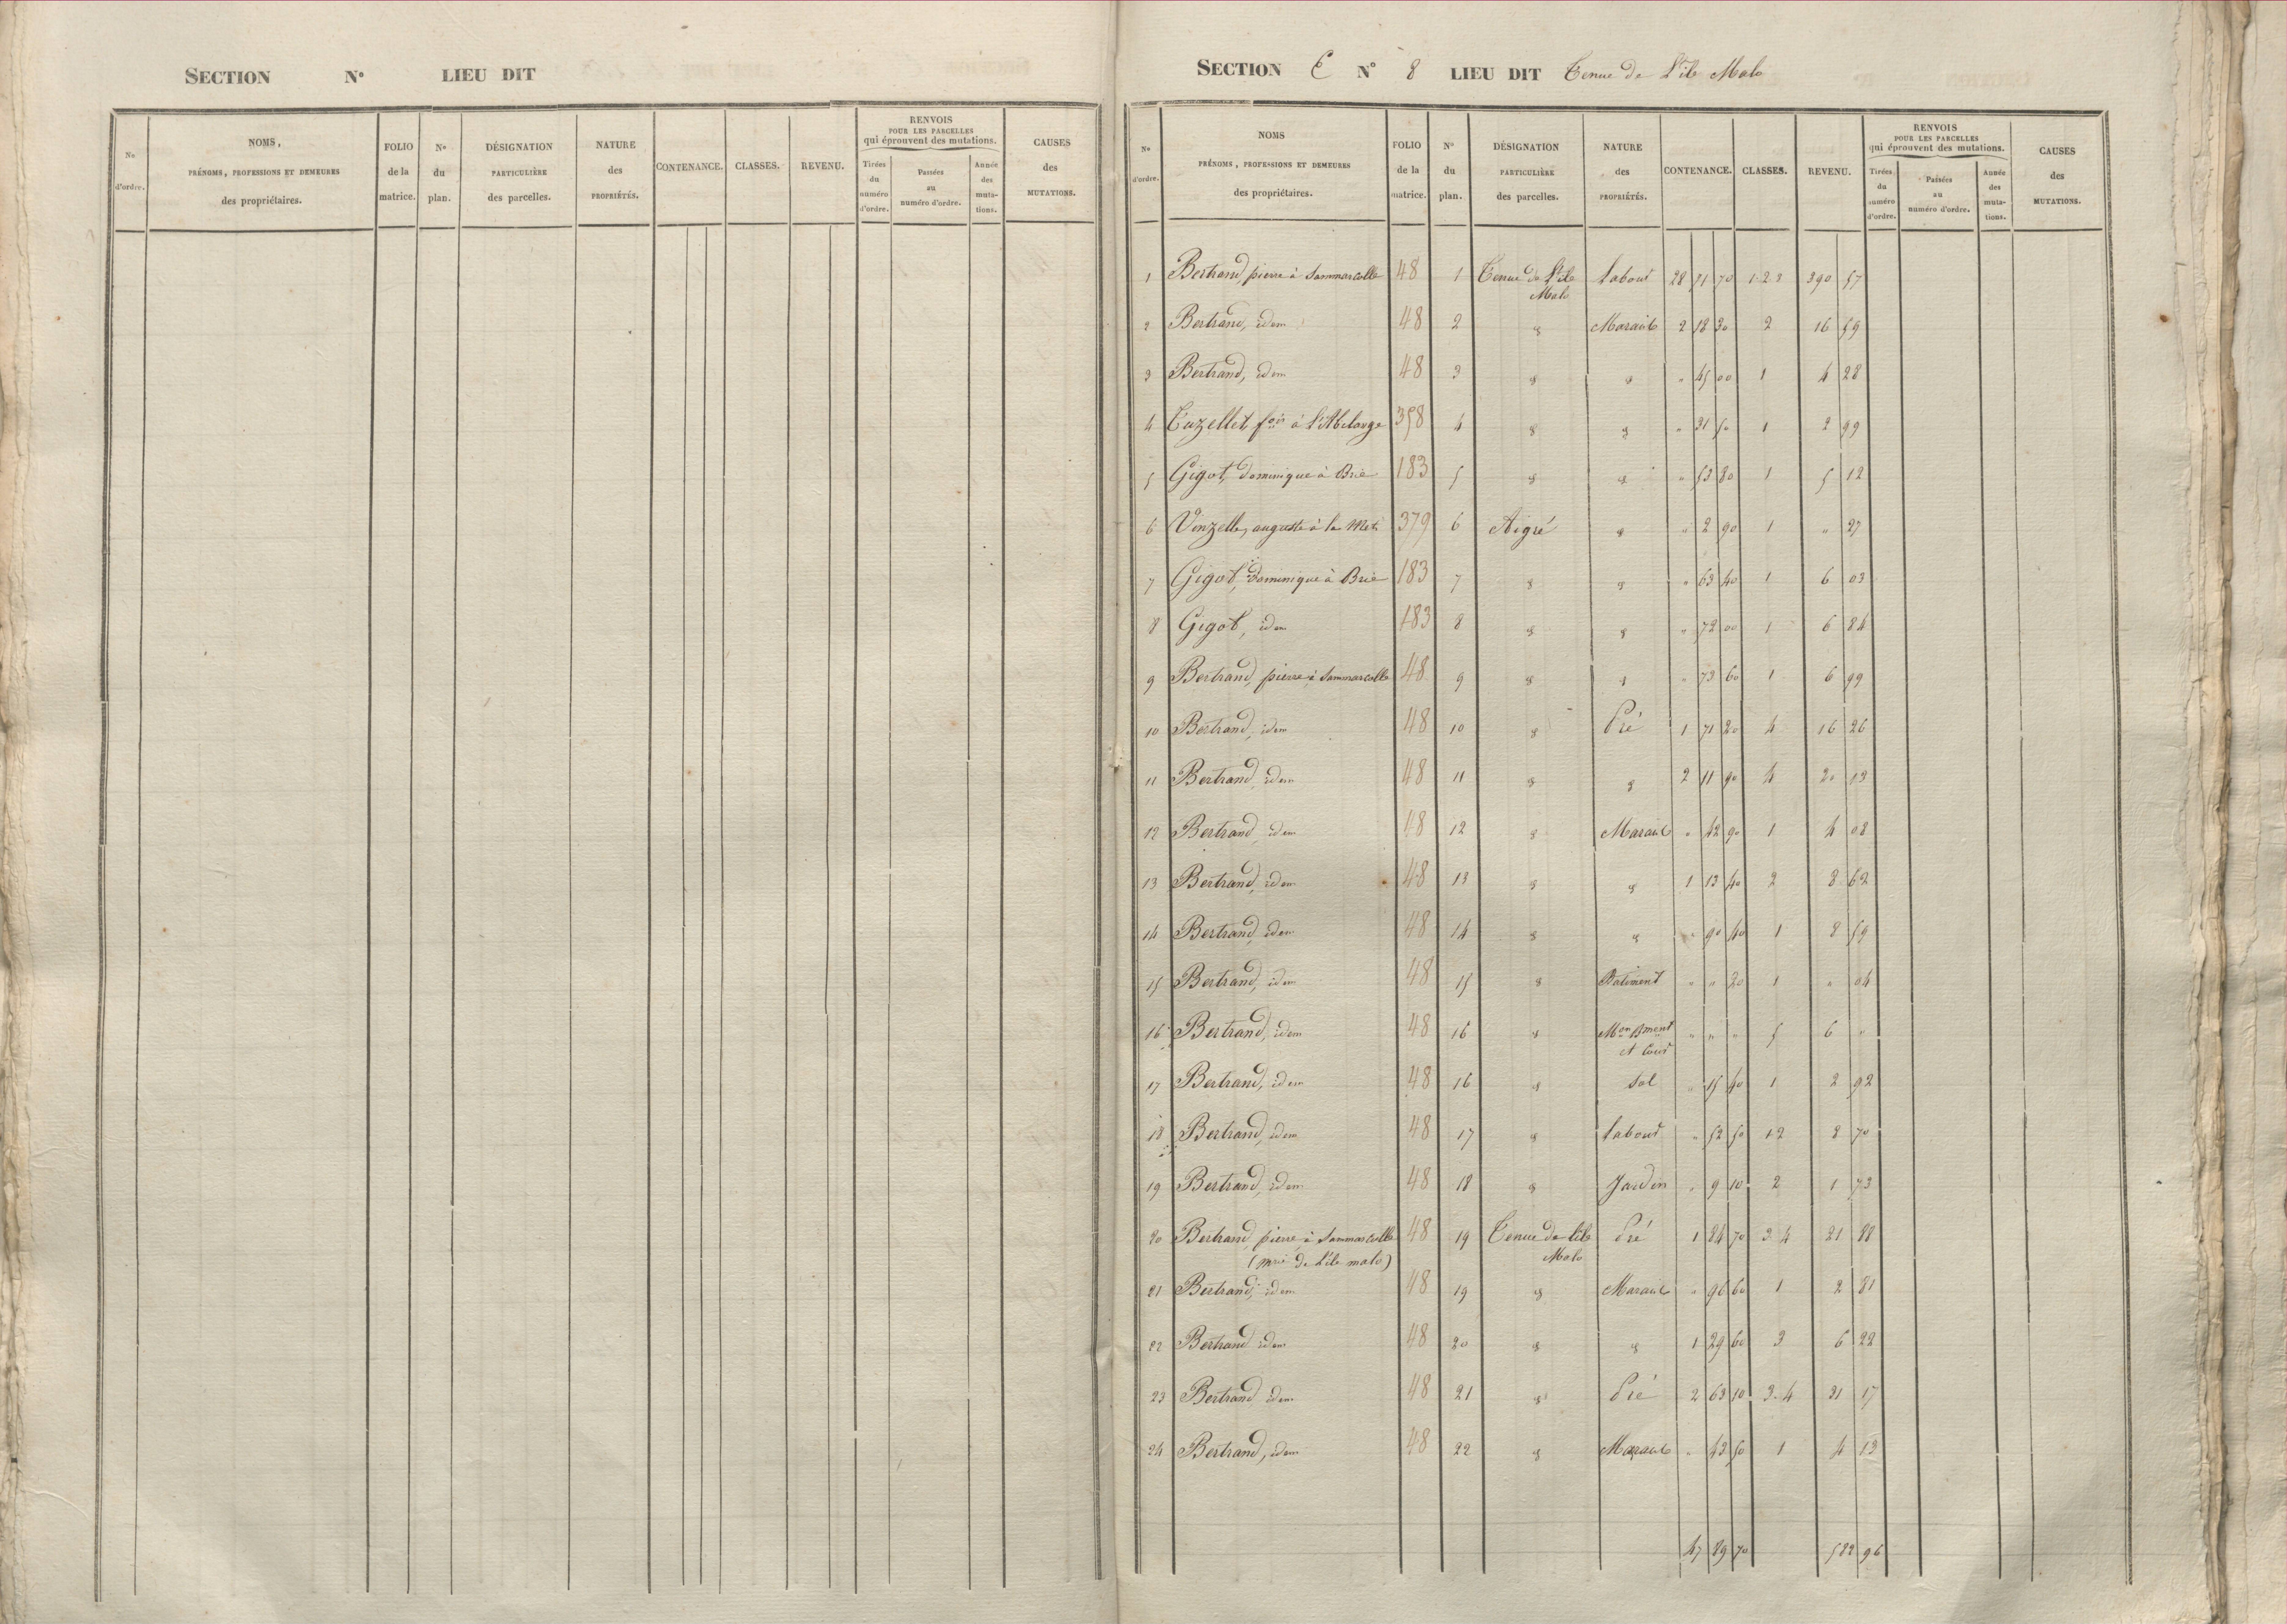 SECTION N° LIEU DIT
No d'ordre.
NOMS, PRÉNOMS, PROFESSIONS ET DEMEURES des propriétaires.
FOLIO de la matrice.
No du plan.
DÉSIGNATION PARTICULIÈRE des parcelles.
NATURE des PROPRIÉTÉS.
CONTENANCE.
CLASSES.
REVENU.
RENVOIS POUR LES PARCELLES qui éprouvent des mutations.
Tirées du numéro d'ordre.
Passées au numéro d'ordre.
Année des mutations.
CAUSES des MUTATIONS.
SECTION E N° 8 LIEU DIT Tenue de l'ile Malo
No d'ordre.
NOMS PRÉNOMS, PROFESSIONS ET DEMEURES des propriétaires.
FOLIO de la matrice.
N° du plan.
DÉSIGNATION PARTICULIÈRE des parcelles.
NATURE des PROPRIÉTÉS.
CONTENANCE.
CLASSES.
REVENU.
RENVOIS POUR LES PARCELLES qui éprouvent des mutations.
Tirées du numéro d'ordre.
Passées au numéro d'ordre.
Année des mutations.
CAUSES des MUTATIONS.
1 Bertrand, pierre à Sammarcolle 48 1 Tenue de l'ile Malo labour 28 71 70 1-2-3 390 57
2 Bertrand, idem 48 2 " Marais 2 18 30 2 16 59
3 Bertrand, idem 48 3 " " " 45 00 1 4 28
4 f.ois à 358 4 " " " 31 50 1 2 99
5 Gigot, dominique à Brie 183 5 " " " 53 80 1 5 12
6 auguste à la 379 6 Aigré " " 2 90 1 " 27
7 Gigot, dominique à Brie 183 7 " " " 63 40 1 6 03
8 Gigot, idem 183 8 " " " 72 00 1 6 84
9 Bertrand, pierre à Sammarcolle 48 9 " " " 73 60 1 6 99
10 Bertrand, idem 48 10 " Pré 1 71 20 4 16 26
11 Bertrand, idem 48 11 " " 2 11 90 4 20 13
12 Bertrand, idem 48 12 " Marais " 42 90 1 4 08
13 Bertrand, idem 48 13 " " 1 13 40 2 8 62
14 Bertrand, idem 48 14 " " " 90 40 1 8 59
15 Bertrand, idem 48 15 " Batiment " " 20 1 " 04
16 Bertrand, idem 48 16 " M.on B.ment et Cour " " " 5 6 "
17 Bertrand, idem 48 16 " Sol " 15 40 1 2 92
18 Bertrand, idem 48 17 " labour " 52 50 1-2 8 70
19 Bertrand, idem 48 18 " Jardin " 9 10 2 1 73
20 Bertrand, pierre à Sammarcolle 48 19 Tenue de l'ile Malo Pré 1 84 70 3-4 21 88
(m.rie de l'ile malo)
21 Bertrand, idem 48 19 " Marais " 96 60 1 2 81
22 Bertrand idem 48 20 " " 1 29 60 3 6 22
23 Bertrand idem 48 21 " Pré 2 63 10 3-4 31 17
24 Bertrand, idem 48 22 " Marais " 43 50 1 4 13
47 89 70 582 96